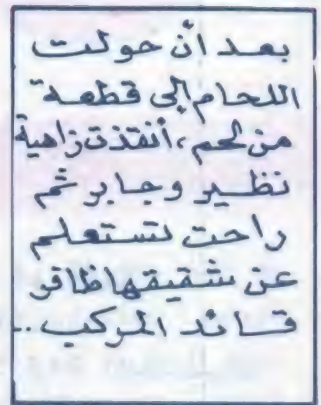 بعد أن حولت
اللحام إلى قطعة
من لحم، أنقذت زاهية
نظير وجابر ثم
راحت تستعلم
عن شقيقها ظافر
قائد المركب ..